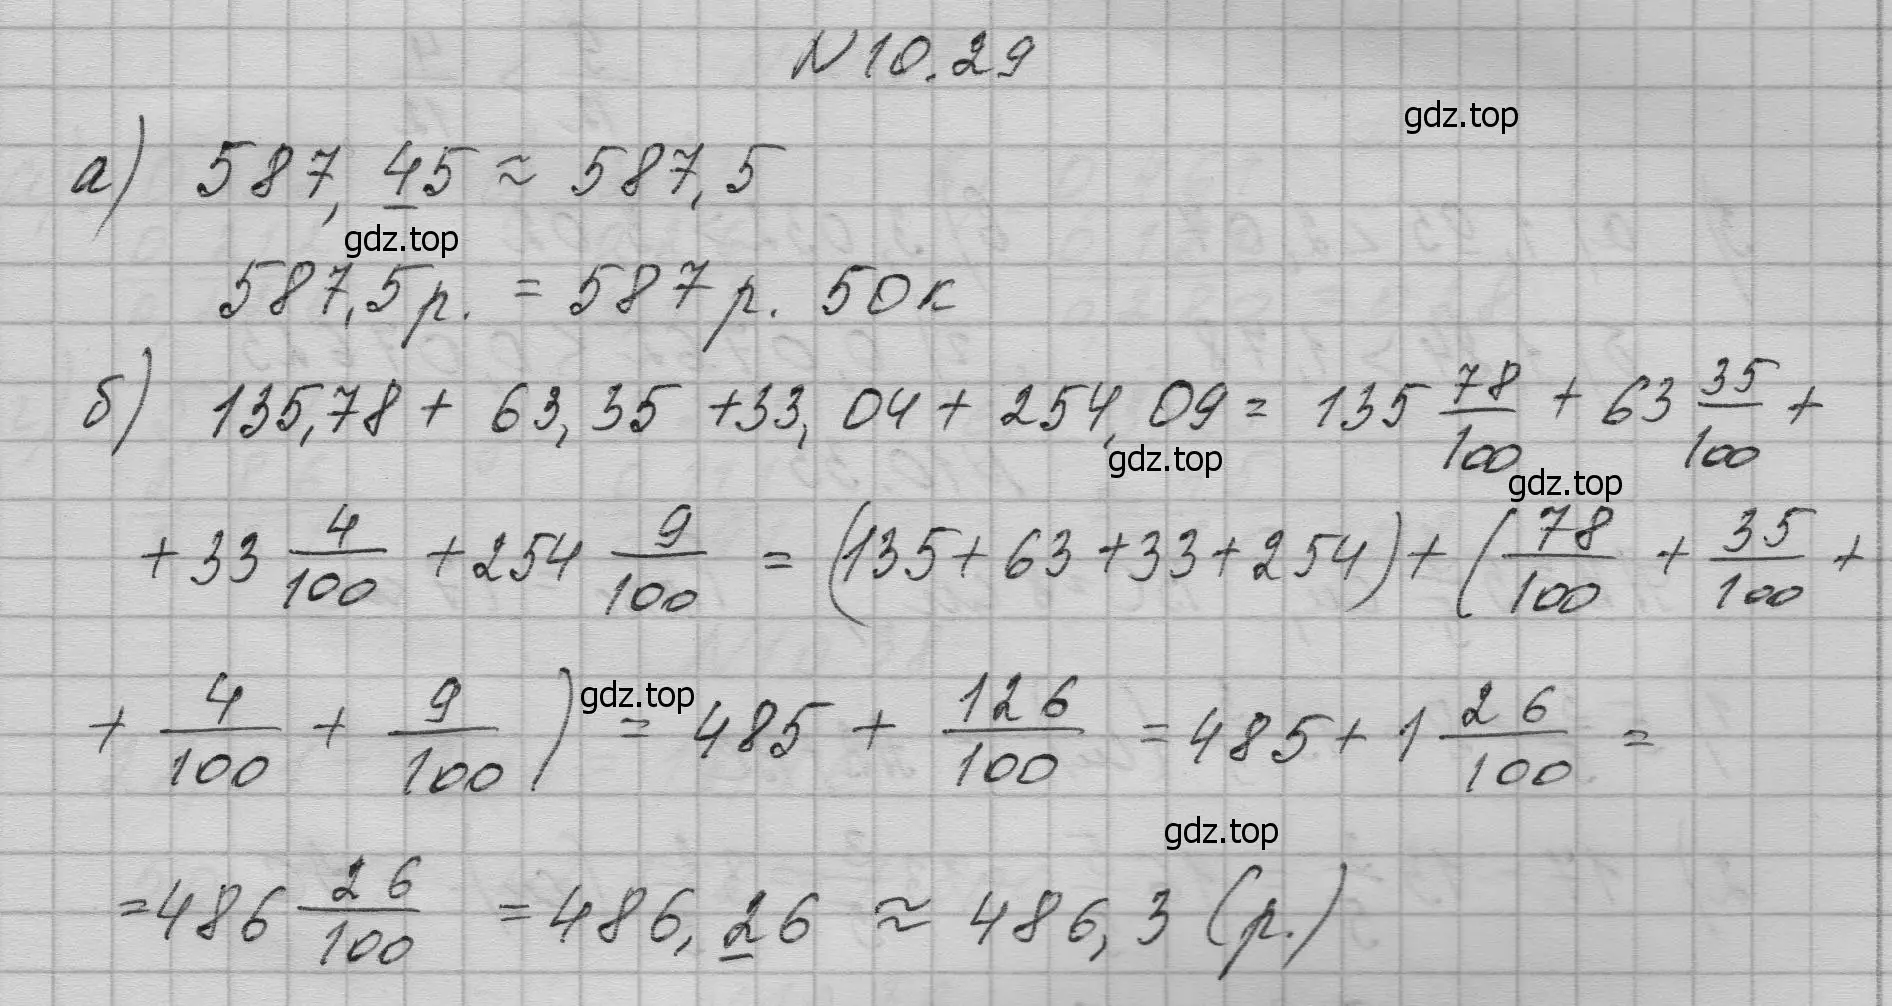 N 10.29
gdz.top
а) 587,45 ≈ 587,5
gdz.top
587,5 р. = 587 р. 50 к
б) 135,78 + 63,35 + 33,04 + 254,09 = 135 78/100 + 63 35/100 +
gdz.top
gdz.top
+ 33 4/100 + 254 9/100 = (135 + 63 + 33 + 254) + (78/100 + 35/100 +
+ 4/100 + 9/100) = 485 + 126/100 = 485 + 1 26/100 =
gdz.top
gdz.top
= 486 26/100 = 486,26 ≈ 486,3 (р.)